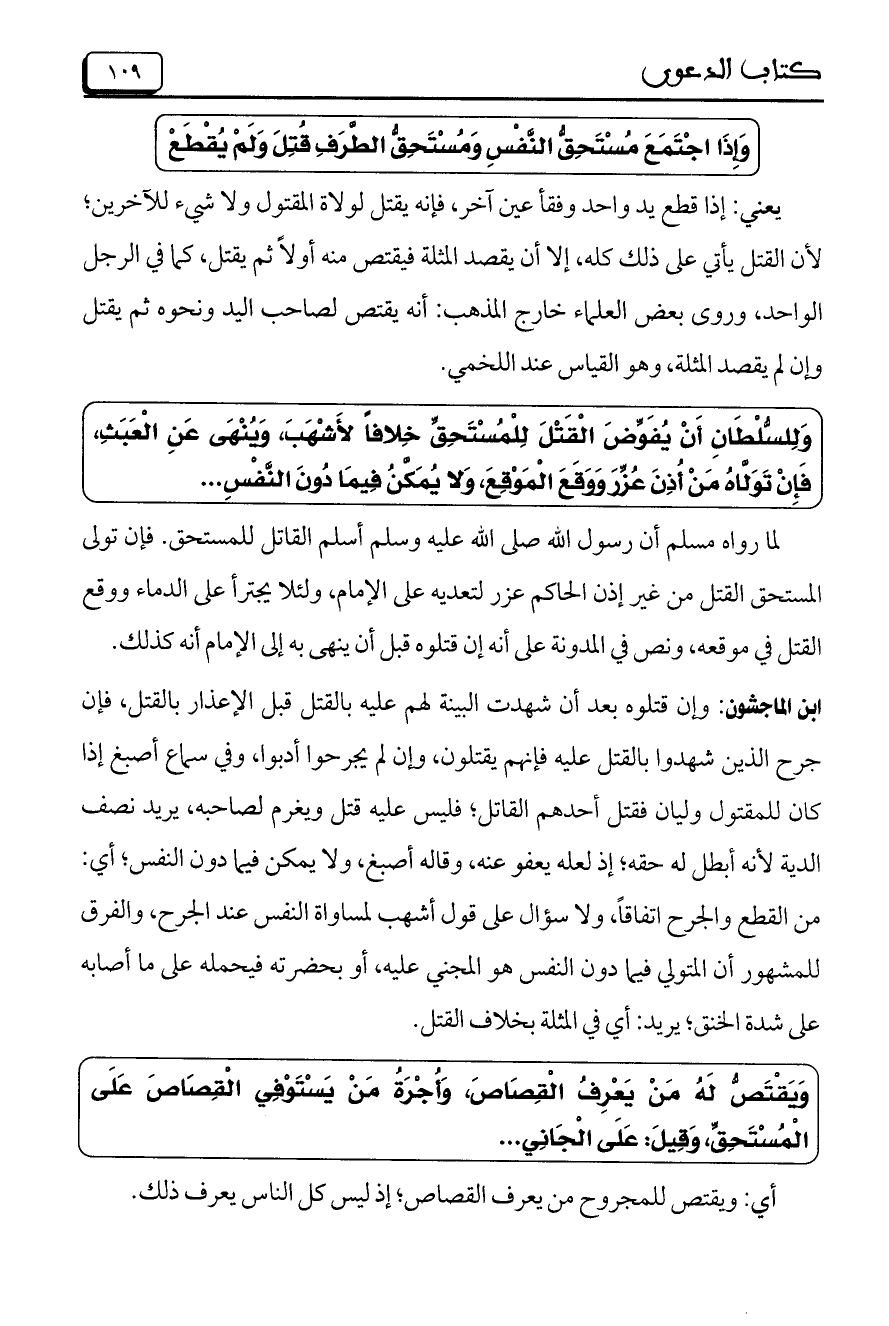 كتاب الدعوى
١٠٩
وَإِذَا اجْتَمَعَ مُسْتَحِقُّ النَّفْسِ وَمُسْتَحِقُّ الطَّرَفِ قُتِلَ وَلَمْ يُقْطَعْ
يعني: إذا قطع يد واحد وفقأ عين آخر، فإنه يقتل لولاة المقتول ولا شيء للآخرين؛
لأن القتل يأتي على ذلك كله، إلا أن يقصد المثلة فيقتص منه أولاً ثم يقتل، كما في الرجل
الواحد، وروى بعض العلماء خارج المذهب: أنه يقتص لصاحب اليد ونحوه ثم يقتل
وإن لم يقصد المثلة، وهو القياس عند اللخمي.
وَلِلسُّلْطَانِ أَنْ يُفَوِّضَ الْقَتْلَ لِلْمُسْتَحِقِّ خِلافاً لأَشْهَبَ، وَيُنْهَى عَنِ الْعَبَثِ،
فَإِنْ تَوَلَّاهُ مَنْ أُذِنَ عُزِّرَ وَوَقَعَ الْمَوْقِعَ، وَلا يُمَكَّنُ فِيمَا دُونَ النَّفْسِ...
لما رواه مسلم أن رسول الله صلى الله عليه وسلم أسلم القاتل للمستحق. فإن تولى
المستحق القتل من غير إذن الحاكم عزر لتعديه على الإمام، ولئلا يجترأ على الدماء ووقع
القتل في موقعه، ونص في المدونة على أنه إن قتلوه قبل أن ينهى به إلى الإمام أنه كذلك.
ابن الماجشون: وإن قتلوه بعد أن شهدت البينة لهم عليه بالقتل قبل الإعذار بالقتل، فإن
جرح الذين شهدوا بالقتل عليه فإنهم يقتلون، وإن لم يجرحوا أدبوا، وفي سماع أصبغ إذا
كان للمقتول وليان فقتل أحدهم القاتل؛ فليس عليه قتل ويغرم لصاحبه، يريد نصف
الدية لأنه أبطل له حقه؛ إذ لعله يعفو عنه، وقاله أصبغ، ولا يمكن فيما دون النفس؛ أي:
من القطع والجرح اتفاقاً، ولا سؤال على قول أشهب لمساواة النفس عند الجرح، والفرق
للمشهور أن المتولي فيما دون النفس هو المجني عليه، أو بحضرته فيحمله على ما أصابه
على شدة الخنق؛ يريد: أي في المثلة بخلاف القتل.
وَيَقْتَصُّ لَهُ مَنْ يَعْرِفُ الْقِصَاصَ، وَأُجْرَةُ مَنْ يَسْتَوْفِي الْقِصَاصَ عَلَى
الْمُسْتَحِقِّ، وَقِيلَ: عَلَى الْجَانِي...
أي: ويقتص للمجروح من يعرف القصاص؛ إذ ليس كل الناس يعرف ذلك.